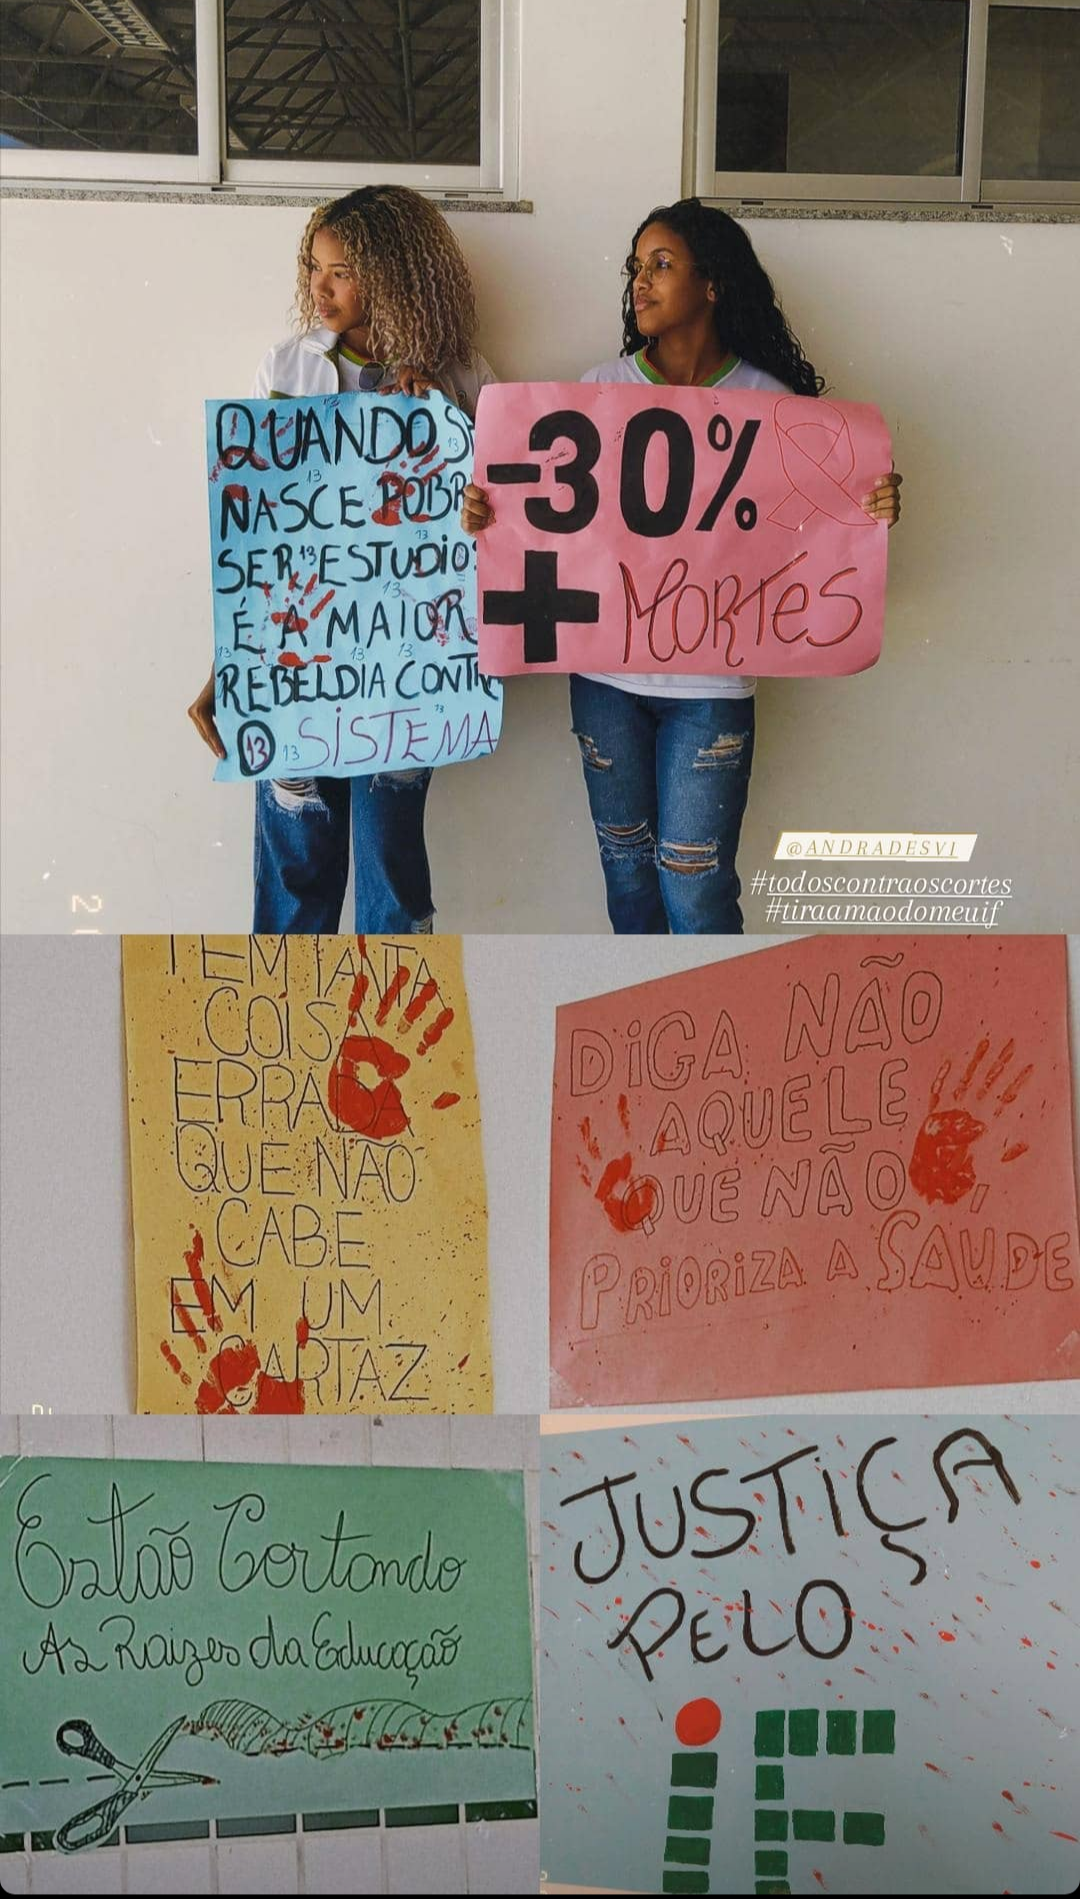 QUANDO S
NASCE POBR
SER ESTUDIO
É A MAIOR
REBELDIA CONTRA
13 13 SISTEMA
-30%
+ MORTES
@ANDRADESVI
#todoscontraoscortes
#tiraamaodomeuif
TEM TANTA
COISA
ERRADA
QUE NÃO
CABE
EM UM
CARTAZ
DIGA NÃO
AQUELE
QUE NÃO
PRIORIZA A SAÚDE
Estão Cortando
As Raizes da Educação
JUSTIÇA
PELO
iF